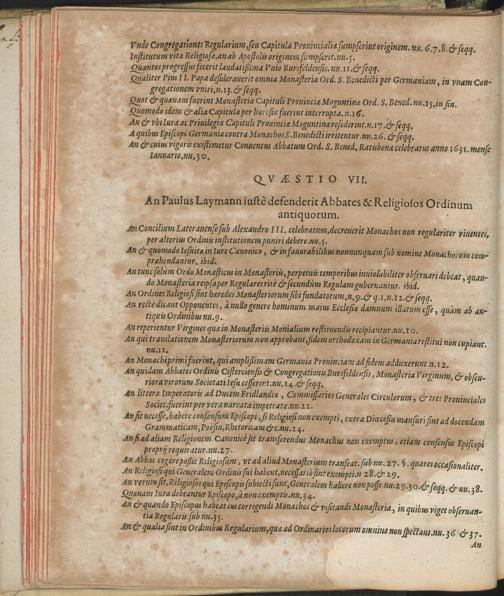 Vnde Congregationes Regularium, seu Capitula Prouincialia sumpserint originem. nu. 6.7.8. & seqq.
Institutum vita Religiosæ, an ab Apostolis originem sumpserit. nu. 5.
Quantos progressus fecerit laudatissima Vnio Bursfeldensis. nu. 11. & seqq.
Qualiter Pius II. Papa desiderauerit omnia Monasteria Ord. S. Benedicti per Germaniam, in vnam Congregationem
vniri, n. 13. & seqq.
Quot & quænam fuerint Monasteria Capituli Prouinciæ Moguntinæ Ord. S. Bened. nu. 15. in fin.
Quomodo idem & alia Capitula per hæresin fuerint interrupta. n. 16.
An & vbi Iura ac Priuilegia Capituli Prouinciæ Moguntinæ resederint. n. 17. & seqq.
A quibus Episcopi Germaniæ contra Monachos S. Benedicti irritentur. nu. 26. & seqq.
An & cuius vigoris existimetur Conuentus Abbatum Ord. S. Bened. Ratisbonæ celebratus anno 1631. mense
Ianuario, nu. 30.
QVÆSTIO VII.
An Paulus Laymann iustè defenderit Abbates & Religiosos Ordinum
antiquorum.
An Concilium Lateranense sub Alexandro III. celebratum, decreuerit Monachos non regulariter viuentes,
per alterius Ordinis institutionem puniri debere. nu. 5.
An & quomodo Iesuitæ in Iure Canonico, & in fauorabilibus nonnunquam sub nomine Monachorum comprahendantur.
ibid.
An tunc solum Ordo Monasticus in Monasteriis, perpetuis temporibus inuiolabiliter obseruari debeat, quando
Monasteria reipsa per Regulares ritè & secundùm Regulam gubernantur. ibid.
An Ordines Religiosi sint hæredes Monasteriorum sibi fundatorum, n. 9. & q. 1. n. 12. & seqq.
An rectè dicant Opponentes, à nullo genere hominum maius Ecclesiæ damnum illatum esse, quàm ab antiquis
Ordinibus nu. 9.
An reperientur Virgines quæ in Monasteriis Monialium restituendis recipiantur. nu. 10.
An qui translationem Monasteriorum non approbant, fidem orthodoxam in Germania restitui non cupiant.
nu. 11.
An Monachi primi fuerint, qui amplissimam Germaniæ Prouinciam ad fidem adduxerunt n. 12.
An quidam Abbates Ordinis Cisterciensis & Congregationis Bursfeldensis, Monasteria Virginum, & obscuriora
virorum Societati Iesu cesserint. nu. 14. & seqq.
An litteræ Imperatoris ad Ducem Fridlandiæ, Commissarios Generales Circulorum, & tres Prouinciales
Societ. fuerint per vera narrata impetratæ. nu. 22.
An sit necesse, habere consensum Episcopi, si Religiosi non exempti, extra Diœcesin mansuri sint ad docendam
Grammaticam, Poësin, Rhetoricam &c. nu. 24.
An si ad aliam Religionem Canonicè sit transferendus Monachus non exemptus, etiam consensus Episcopi
proprij requiratur. nu. 27.
An Abbas cogere possit Religiosum, vt ad aliud Monasterium transeat. sub nu. 27. §. quares occasionaliter.
An Religiosi qui Generalem Ordinis sui habent, necessariò sint exempti. n 28. & 29.
An verum sit, Religiosos qui Episcopis subiecti sunt, Generalem habere non posse. nu. 29. 30. & seqq. & nu. 38.
Quænam Iura debeantur Episcopo, à non exemptis. nu. 34.
An & quando Episcopus habeat ius corrigendi Monachos & visitandi Monasteria, in quibus viget obseruantia
Regularis. sub nu. 35.
An & qualia sint in Ordinibus Regularium, quæ ad Ordinarios locorum omnino non spectant. nu. 36 & 37.
An